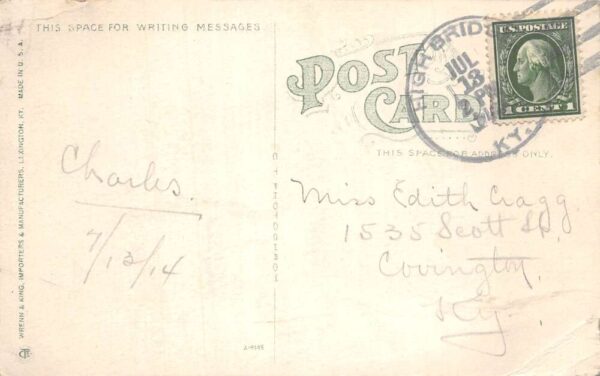 THIS SPACE FOR WRITING MESSAGES.
POST CARD
THIS SPACE FOR ADDRESS ONLY.
HIGH BRIDGE
JUL
13
2 PM
KY.
U.S. POSTAGE
1 CENT 1
Charles.
7/13/14
Miss Edith Cragg
1535 Scott St,
Covington,
Ky.
WRENN & KING, IMPORTERS & MANUFACTURERS, LEXINGTON, KY. MADE IN U.S.A.